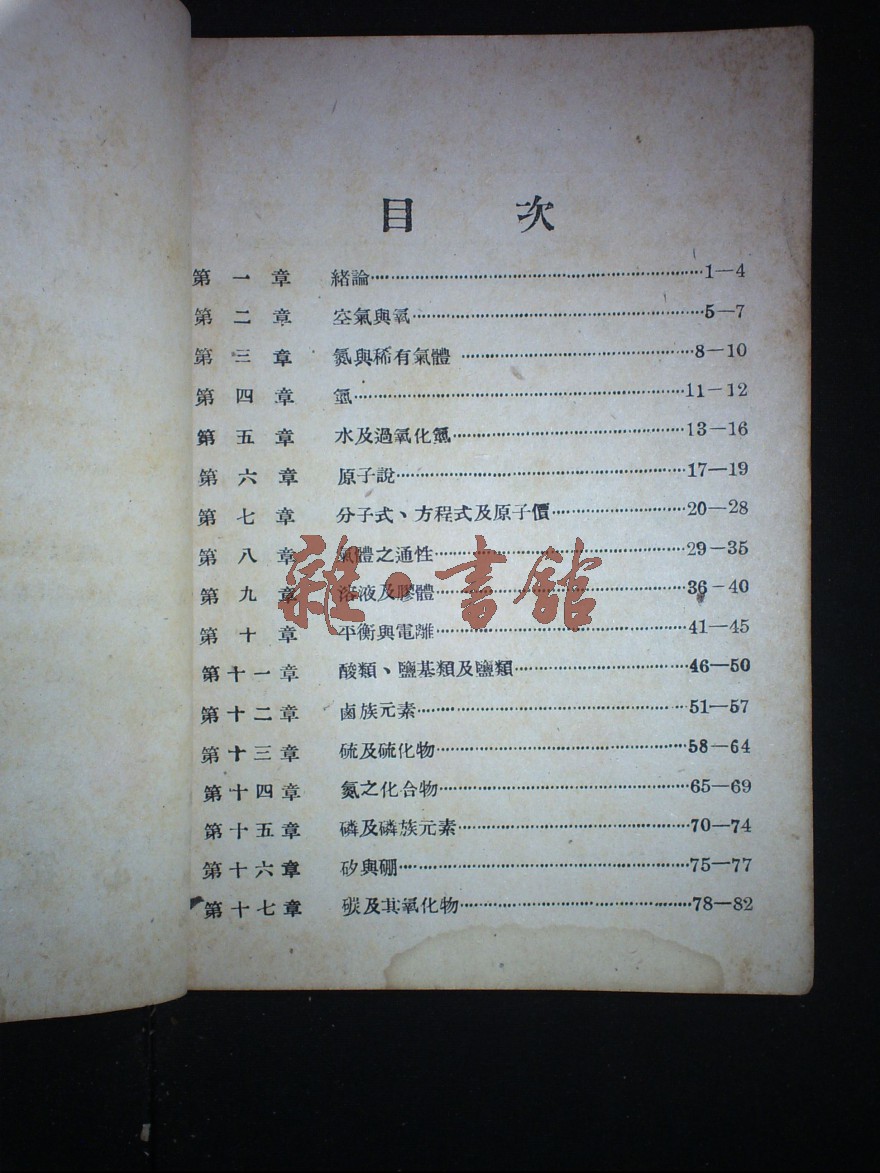 目 次
第一章 緒論……1—4
第二章 空氣與氧……5—7
第三章 氮與稀有氣體……8—10
第四章 氫……11—12
第五章 水及過氧化氫……13—16
第六章 原子說……17—19
第七章 分子式、方程式及原子價……20—28
第八章 氣體之通性……29—35
第九章 溶液及膠體……36—40
第十章 平衡與電離……41—45
第十一章 酸類、鹽基類及鹽類……46—50
第十二章 鹵族元素……51—57
第十三章 硫及硫化物……58—64
第十四章 氮之化合物……65—69
第十五章 磷及磷族元素……70—74
第十六章 矽與硼……75—77
第十七章 碳及其氧化物……78—82
雜·書館